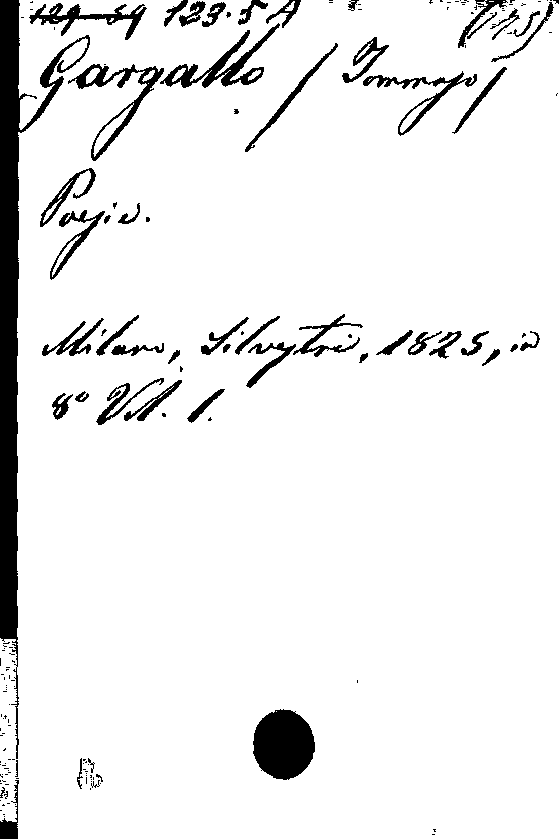 129 59 123.5 A (175)
Gargallo / Tommaso /
Poesie.
Milano, Silvestri, 1825, in
8° Vol. 1.